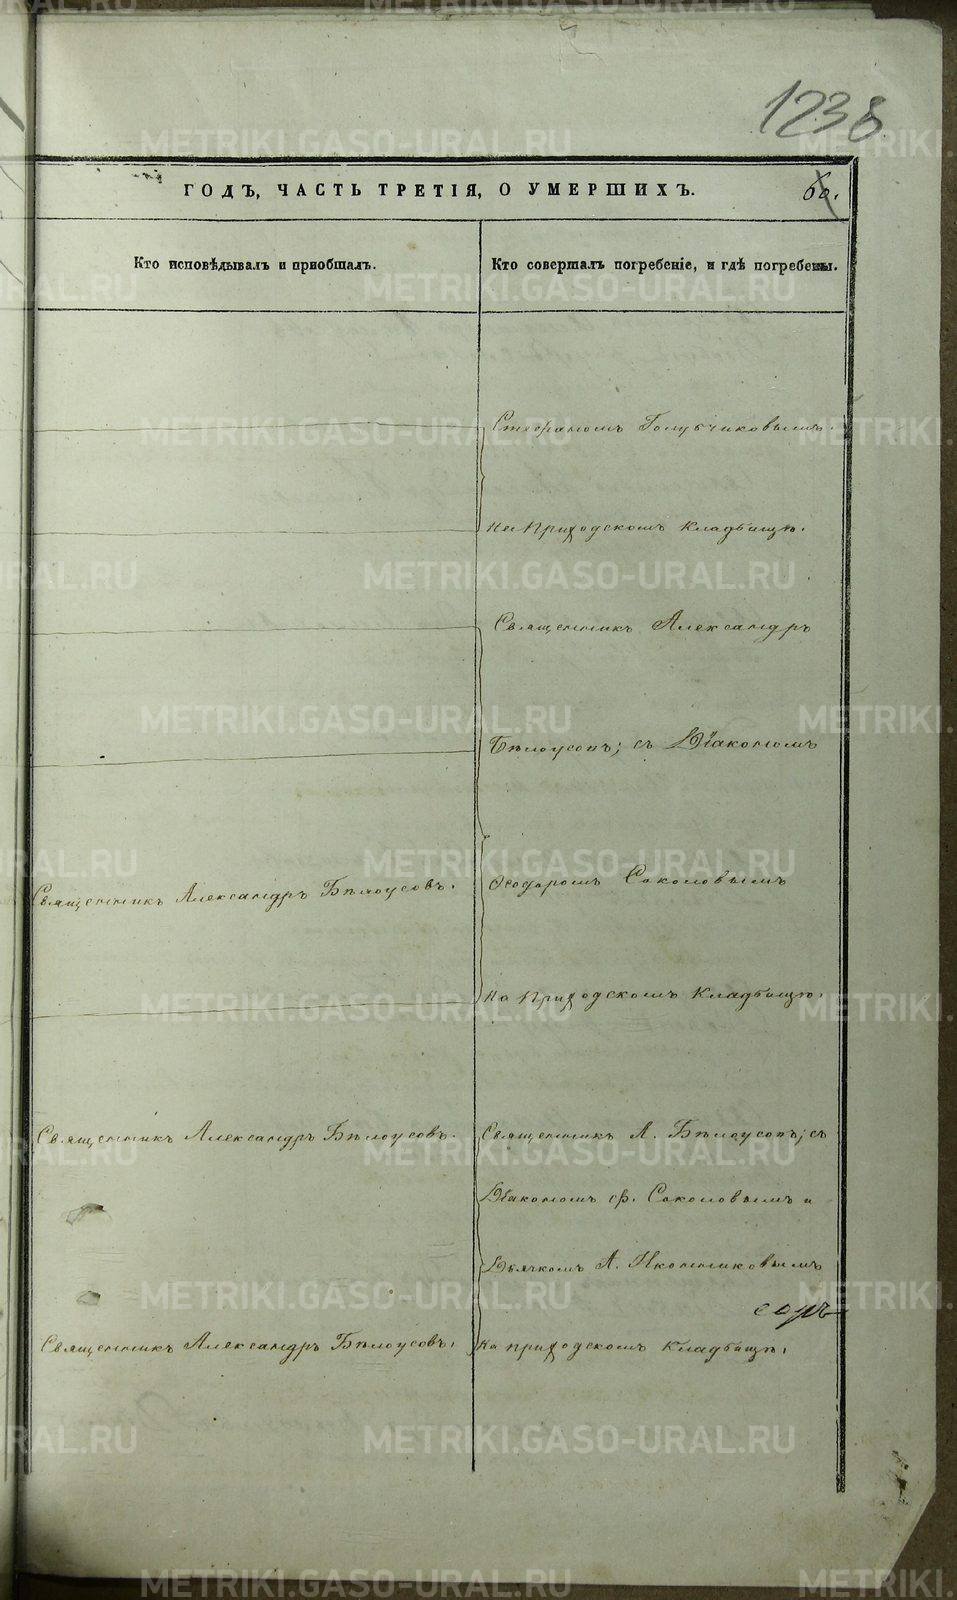 1238
ГОДЪ, ЧАСТЬ ТРЕТІЯ, О УМЕРШИХЪ.
60.
Кто исповѣдывалъ и пріобщалъ.
Кто совершалъ погребеніе, и гдѣ погребены.
Стефаномъ Голубчиковымъ.
на Приходскомъ Кладбищѣ.
Священникъ Александръ
Бѣлоусовъ; съ Діакономъ
Священникъ Александръ Бѣлоусовъ.
Ѳеодоромъ Соколовымъ
на Приходскомъ Кладбищѣ.
Священникъ Александръ Бѣлоусовъ.
Священникъ А. Бѣлоусовъ; съ
Діакономъ Ѳ. Соколовымъ и
Дьячкомъ А. Иконниковымъ
Священникъ Александръ Бѣлоусовъ.
на приходскомъ Кладбищѣ.
METRIKI.GASO-URAL.RU